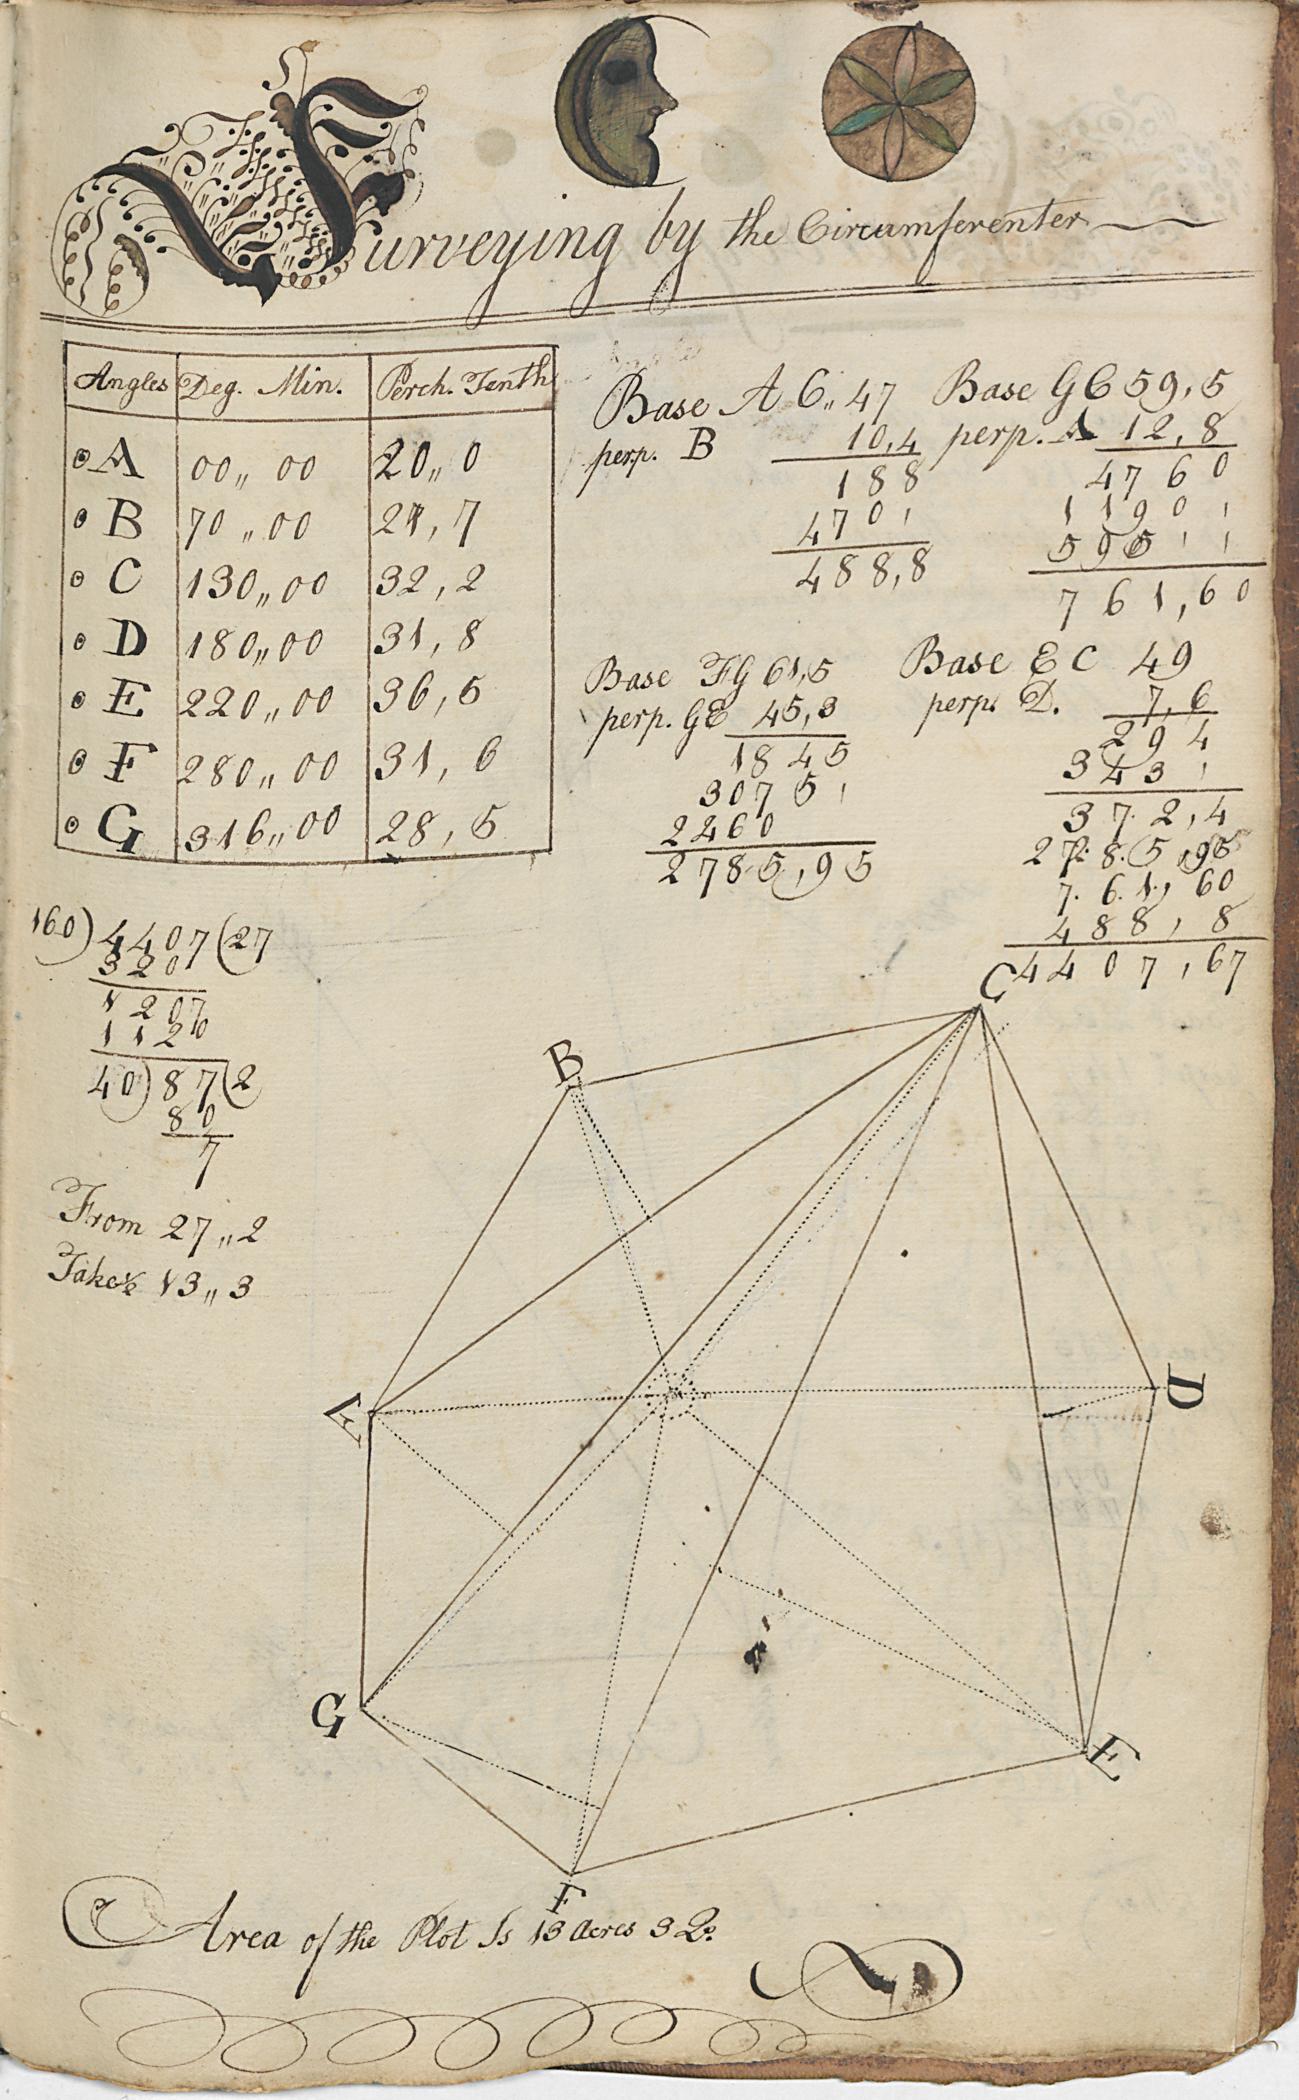 Surveying by the Circumferenter
Angles Deg. Min. Perch. Tenth
A 00,, 00 20,, 0
B 70 ,, 00 24, 7
C 130,, 00 32, 2
D 180,, 00 31, 8
E 220,, 00 36, 5
F 280,, 00 31, 6
G 316,, 00 28, 5
Base A C,, 47
perp. B 10,4
188
470
488,8
Base G C 59,5
perp. A 12,8
4760
1190
595
761,60
Base FG 61,5
perp. GE 45,3
1845
3075
2460
2785,95
Base E C 49
perp. D. 7,6
294
343
372,4
2785,95
761,60
488,8
4407,67
160) 4407 (27
320
1207
1120
40) 87 (2
80
7
From 27,,2
Take 13,,3
C
B
A
D
G
E
F
Area of the Plot Is 13 Acres 3 Q.